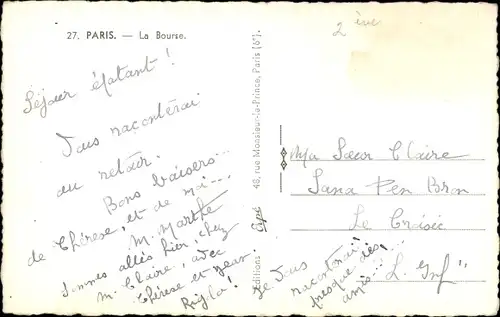 27. PARIS. — La Bourse.
Séjour épatant!
Vous raconterai
au retour.
Bons baisers...
de Thérèse, et de moi...
M. Marthe
Sommes allés hier chez
M. Claire, avec
Thérèse et Jean.
Rigolo!
Je vous
raconterai
presque dès
Editions Gyre 48, rue Monsieur-le-Prince, Paris (6e).
2 ème
Ma Sœur Claire
Sana Pen Bron
Le Croisic
L. Inf"